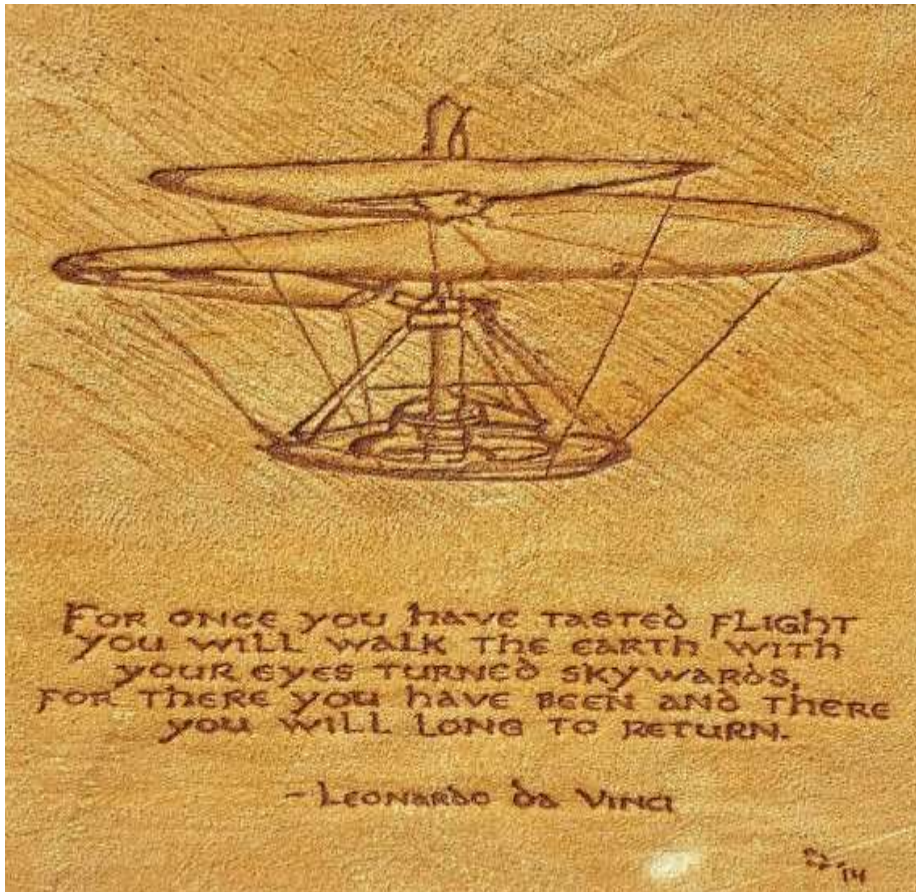 For once you have tasted flight
you will walk the earth with
your eyes turned skywards,
for there you have been and there
you will long to return.
- Leonardo da Vinci
'14